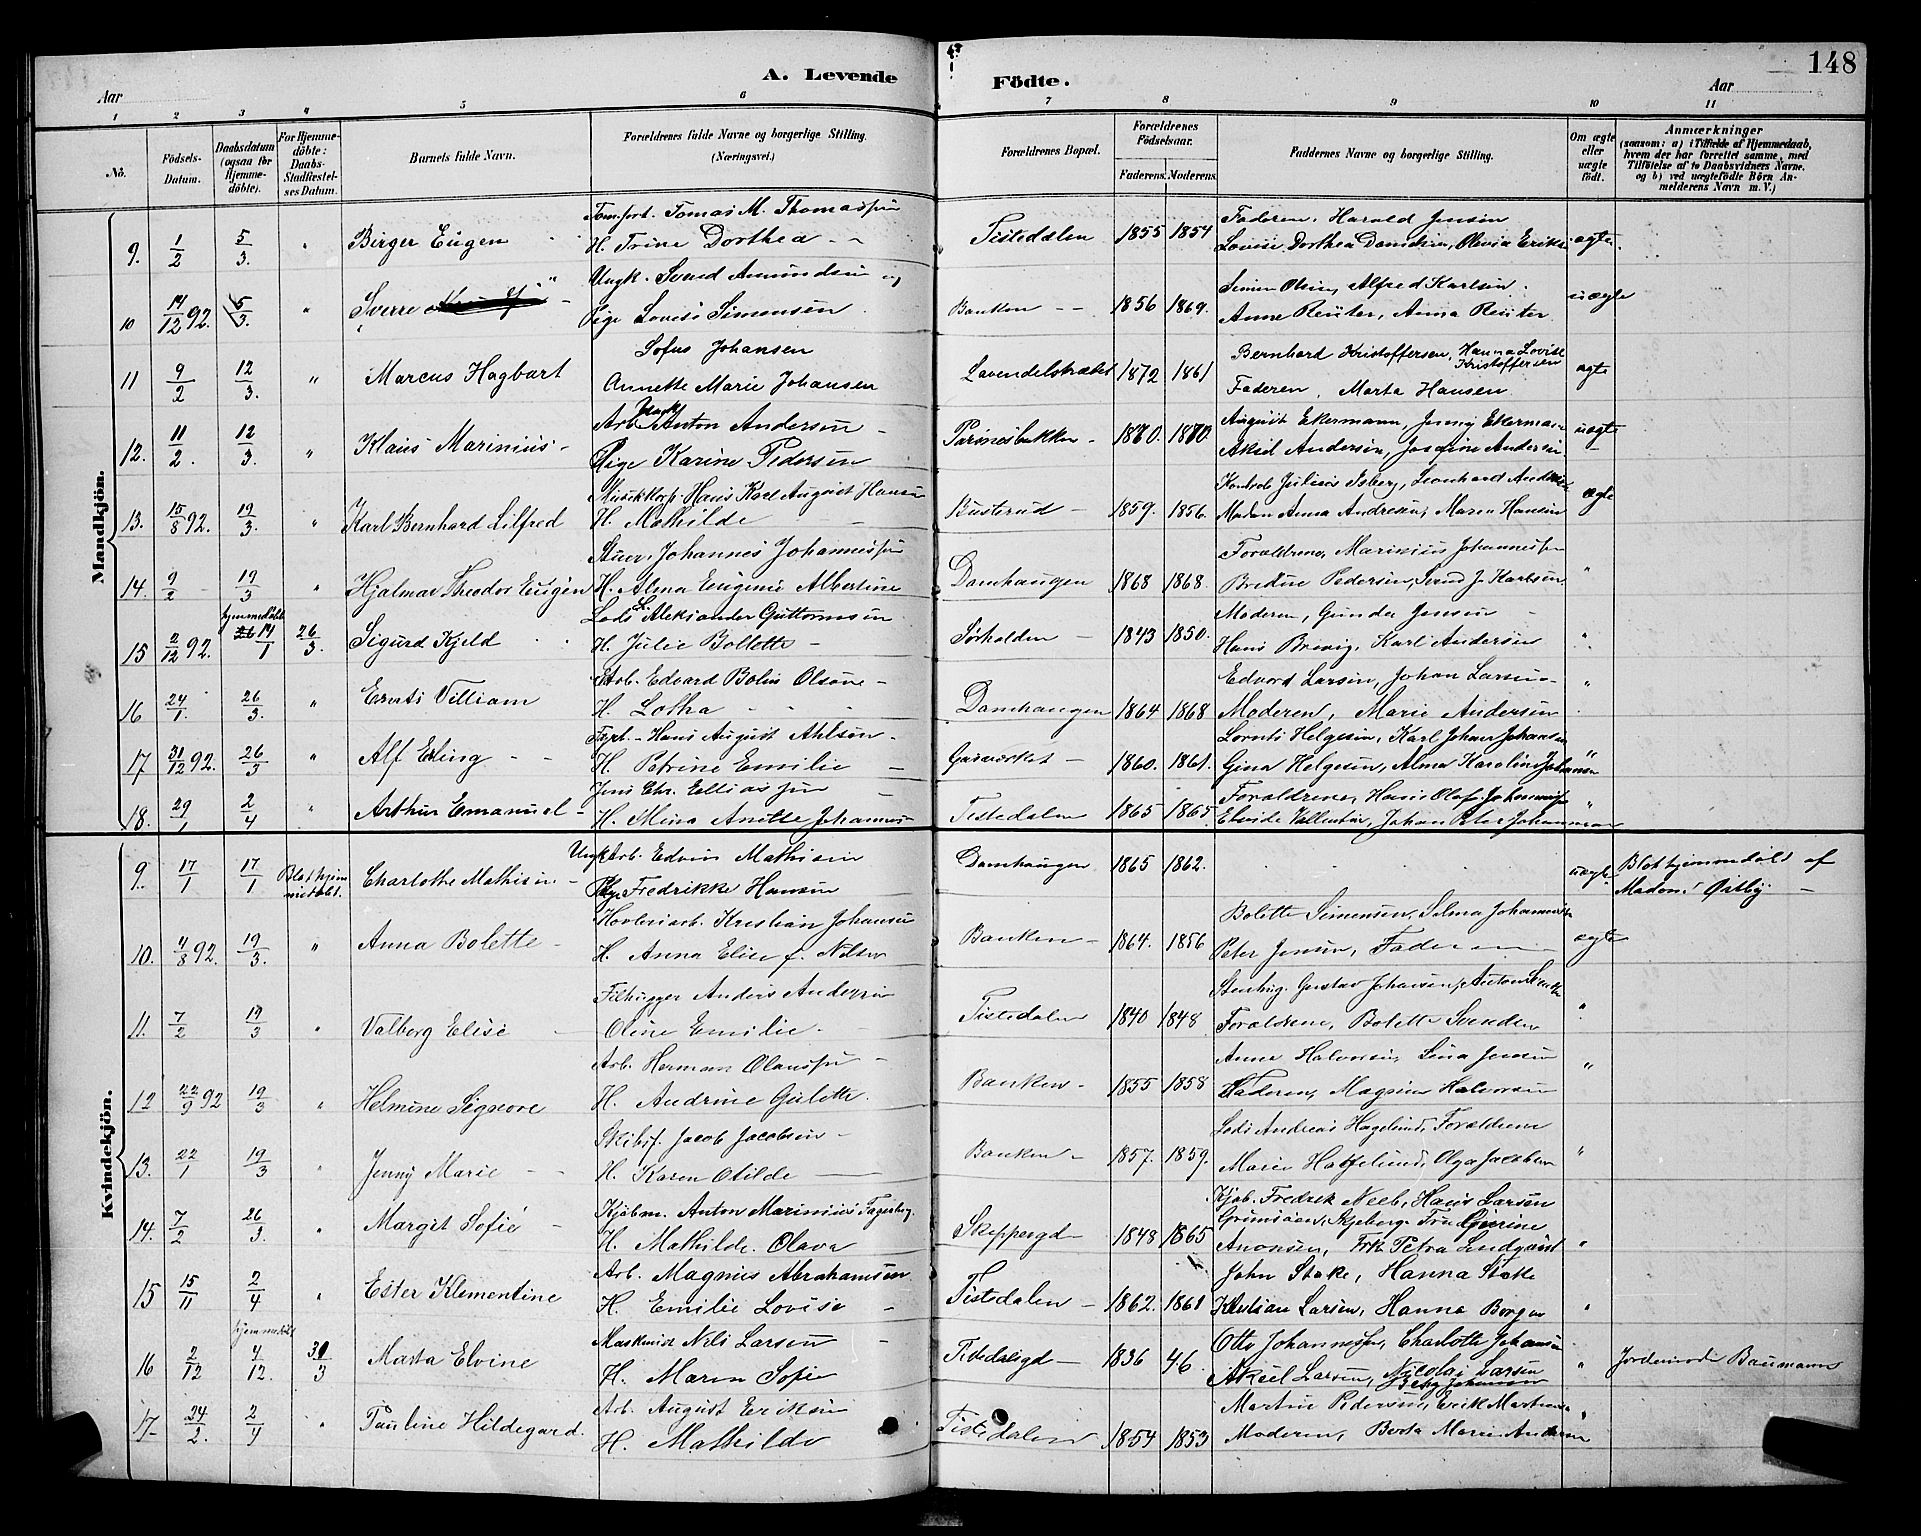 148
A. Levende Födte.
Aar
Aar
1 2 3 4 5 6 7 8 9 10 11
No.
Födsels-Datum.
Daabsdatum (ogsaa for Hjemmedöbte).
For Hjemmedöbte: Daabs-Stadfæstelses Datum.
Barnets fulde Navn.
Forældrenes fulde Navne og borgerlige Stilling. (Næringsvei.)
Forældrenes Bopæl.
Forældrenes Födselsaar.
Faderens. Moderens.
Faddernes Navne og borgerlige Stilling.
Om ægte eller uægte födt.
Anmærkninger
(saasom: a) i Tilfælde af Hjemmedaab, hvem der har forrettet samme, med Tilföielse af to Daabsvidners Navne, og b) ved uægtefödte Börn Anmelderens Navn m. V.)
Mandkjön.
9. 1/2 5/3 " Birger Eugen Tomas M. Thomassen
H. Trine Dorthea Tistedalen 1855 1854 Faderen, Harald Jensen
Lovise Dorthea Olivia ægte
10 14/12 92. 5/3 " Sverre Ungk. Svend Amundsen og
Pige Lovise Simensen Banken 1856 1869. Simen Olsen, Alfred Karlsen
Anne Reuter, Anna Reuter uægte
11 9/2 12/3. " Marcus Hagbart Sofus Johansen
Annette Marie Johansen 1872 1861 Bernhard Kristoffersen, Hanna Lovise Kristoffersen
Faderen, Marta Hansen ægte
12. 11/2. 12/3. " Klaus Marinius Arb. Anton Andersen
Pige Karine Pedersen 1870. 1870. August Ekermann, Jenny Ekermann
Aksel Andersen, Josefine Andersen uægte
13. 15/8 92. 19/3. " Karl Bernhard Lilfred Hans Karl August Hansen
H. Mathilde Busterud 1859. 1856. Julius Isberg, Leonhard Andresen
Madam Anna Andresen, Maren Hansen ægte
14. 9/2 19/3 " Hjalmar Theodor Eugen Stuer. Johannes Johannessen
H. Alma Eugenie Albertine Damhaugen 1868 1868. Forældrene, Marinius Johannessen
Pedersen, Svend J. Karlsen "
15 2/12 92. hjemmedöbt 14/1 26/3. Sigurd Kjeld Lods Aleksander Guttormsen
H. Julie Bollette Sörhalden 1843 1850. Moderen, Gunda Jensen
Hans Brevig, Karl Andersen "
16 24/1. 26/3. " Ernts Villiam Arb. Edvard Bolin Olsen
H. Lotha Damhaugen 1864 1868 Edvard Larsen, Johan Larsen
Moderen, Marie Andersen "
17 31/12 92. 26/3 " Alf Erling Hans August Ahlsen
H. Petrine Emilie Gasværket 1860. 1861. Lornts Helgesen, Karl Johan Johansen
Gina Helgesen, Alma Karoline Johansen "
18. 29/1 2/4 " Arthur Emanuel Jens Chr. Elliassen
H. Mina Anette Tistedalen 1865 1865 Forældrene, Hans Olaf Johannessen
Johan Peter "
Kvindekjön.
9. 17/1 17/1 Blot hjemmedöbt. Charlotte Mathisen Ungk. Arb. Edvin Mathisen
Pige Fredrikke Hansen Damhaugen 1865 1862. uægte Blot hjemmedöbt af
Madam Östby
10. 4/8 92. 19/3. " Anna Bolette Hövleriarb. Kristian Johansen
H. Anna Elise f. Nilsen Banken 1864. 1856 Bolette Simensen, Selma
Peter Jensen, Faderen ægte
11. 7/2 19/3 " Valborg Elise Filhugger Anders Andersen
Oline Emilie Tistedalen 1840 1848 Stenhug. Gustav Johansen, Anton
Forældrene, Bolette Svendsen "
12 22/9 92 19/3 " Helmine Signore Arb. Herman Olaussen
H. Andrine Gulette Banken 1855 1858 Anne Halvorsen, Lina Jensen
Faderen, Magnus Halvorsen "
13. 22/1 19/3 " Jenny Marie Skibsf. Jacob Jacobsen
H. Karen Otilde Banken 1857. 1859. Lods Andreas Hagelund, Forældrene
Marie Hagelund, Olga Jacobsen "
14. 7/2 26/3. " Margit Sofie Kjöbm. Anton Marinius Fagerberg
H. Mathilde Olava Skeppergd 1848 1865 Kjöb. Fredrik Neeb, Hans Larsen
Grimsöen, Skjeberg. Fru Gurine
Aronsen, Frk Petra Lindqvist "
15 15/11 2/4 " Ester Klementine Arb. Magnus Abrahamsen
H. Emilie Lovise Tistedalen 1862. 1861 John Stake, Hanna Stake
Kristian Larsen, Hanna Borgen "
16 2/12 hjemmedöbt 4/12. 31/3 Marta Elvine Maskinist Nils Larsen
H. Maren Sofie Tistedalsgd 1836 46. Otto Johannessen, Charlotte Johansen
Aksel Larsen, Nicolai Larsen
Johansen " Jordemoder Baumann
17 24/2. 2/4 " Pauline Hildegard. Arb. August Eriksen
H. Mathilde Tistedalen 1854 1853 Martin Pedersen, Erik Martinsen
Moderen, Berta Marie Andersen "